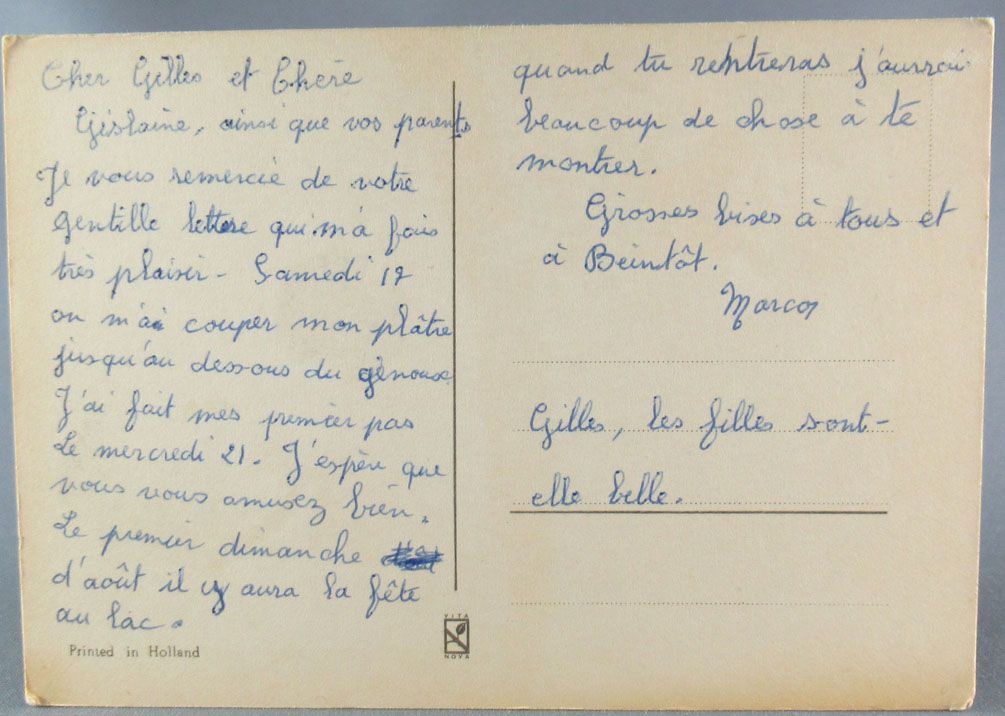 Cher Gilles et Chère
Gislaine, ainsi que vos parents
Je vous remercie de votre
gentille lettre qui m'a fais
très plaisir - Samedi 17
on m'ai couper mon plâtre
jusqu'au dessous du génoux
J'ai fait mes premier pas
Le mercredi 21. J'espère que
vous vous amusez bien.
Le premier dimanche
d'août il y aura la fête
au lac.
Printed in Holland
VITA
NOVA
quand tu rentreras j'aurrai
beaucoup de chose à te
montrer.
Grosses bises à tous et
à Beintôt.
Gilles, les filles sont-
elle belle.